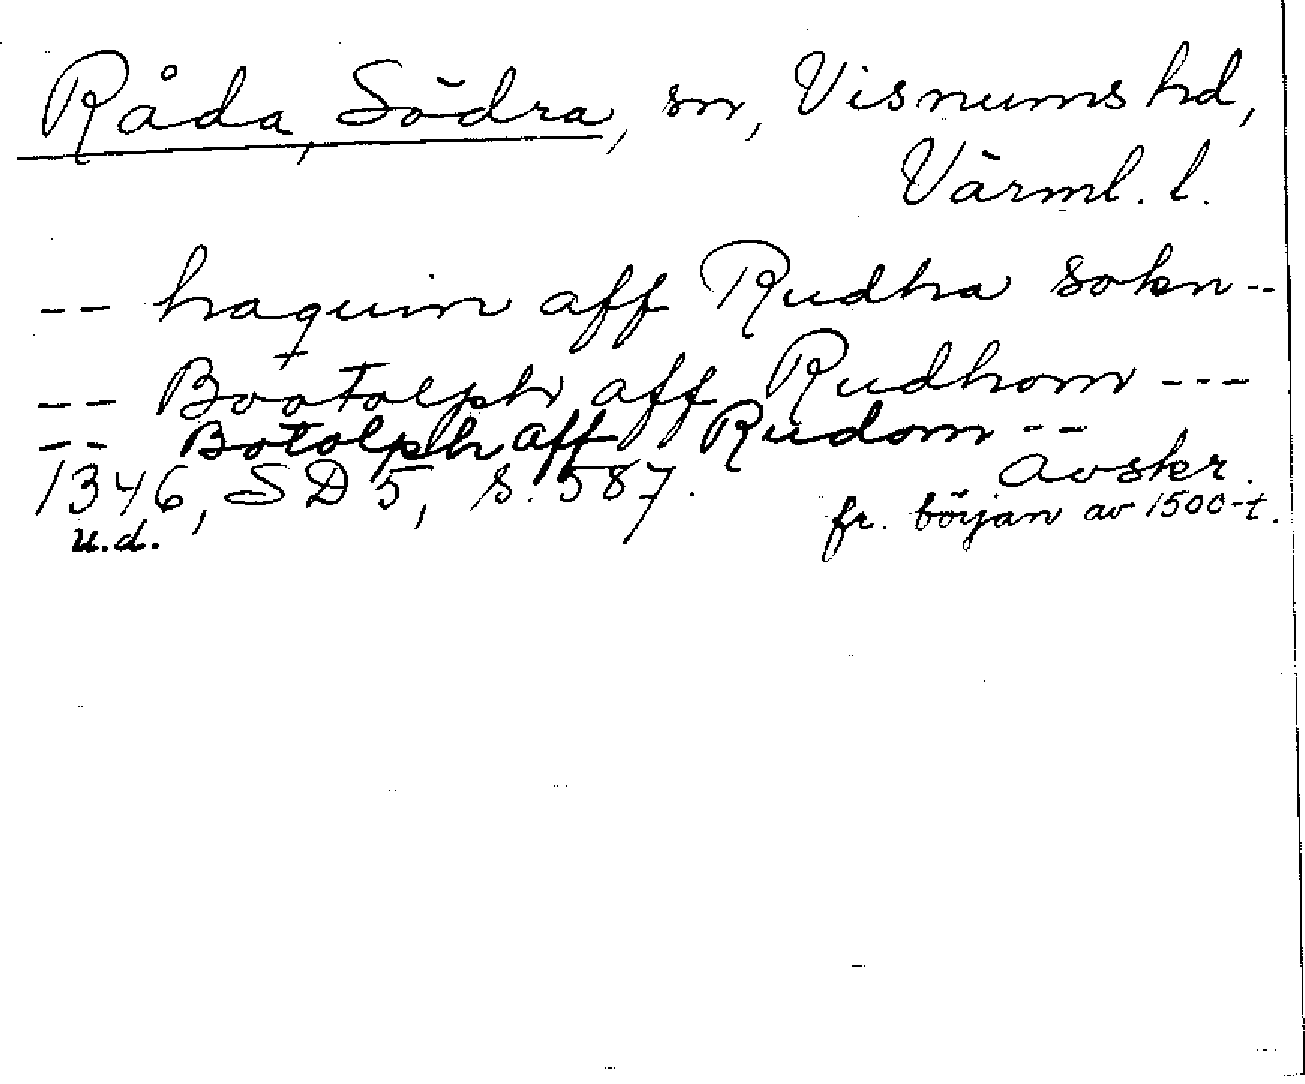 Råda, Södra, sn, Visnums hd,
Värml. l.
-- haquin aff Rudha sokn--
-- Bootolph aff Rudhom ---
-- Botolph aff Rudom --
1346, SD 5, s. 587. avskr.
u.d. fr. början av 1500-t.